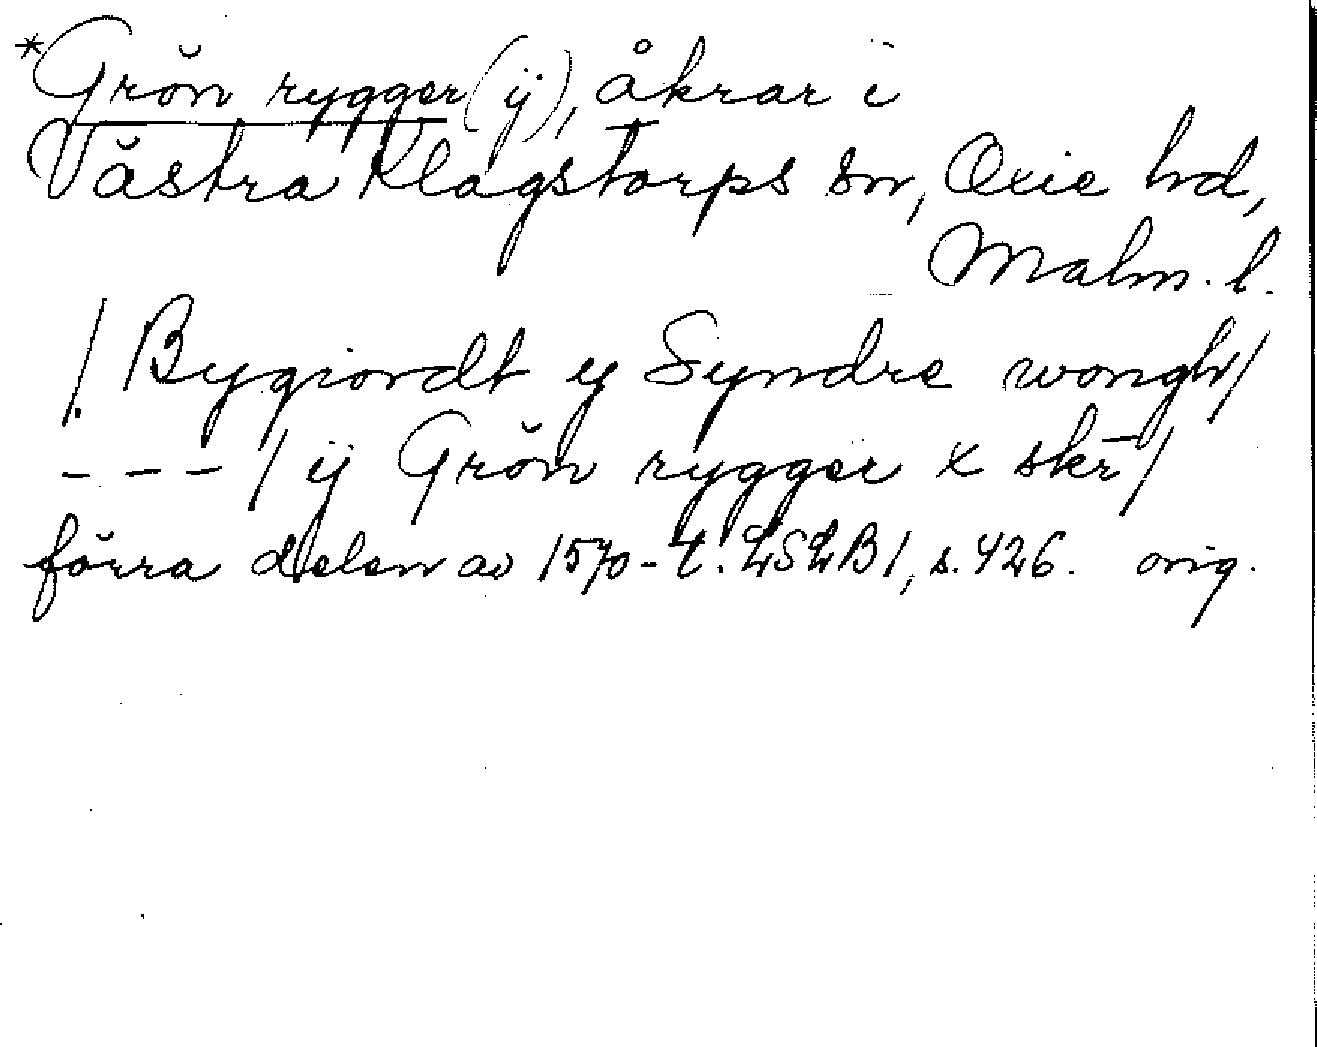 *Grön rygger (ÿ), åkrar i
Västra Klagstorps sn, Oxie hd,
Malm. l.
/. Bygiordt y Syndre wongh/
- - - / ÿ Grön rygger x skr̄/
förra delen av 1570-t. LSLB1, s. 426. orig.